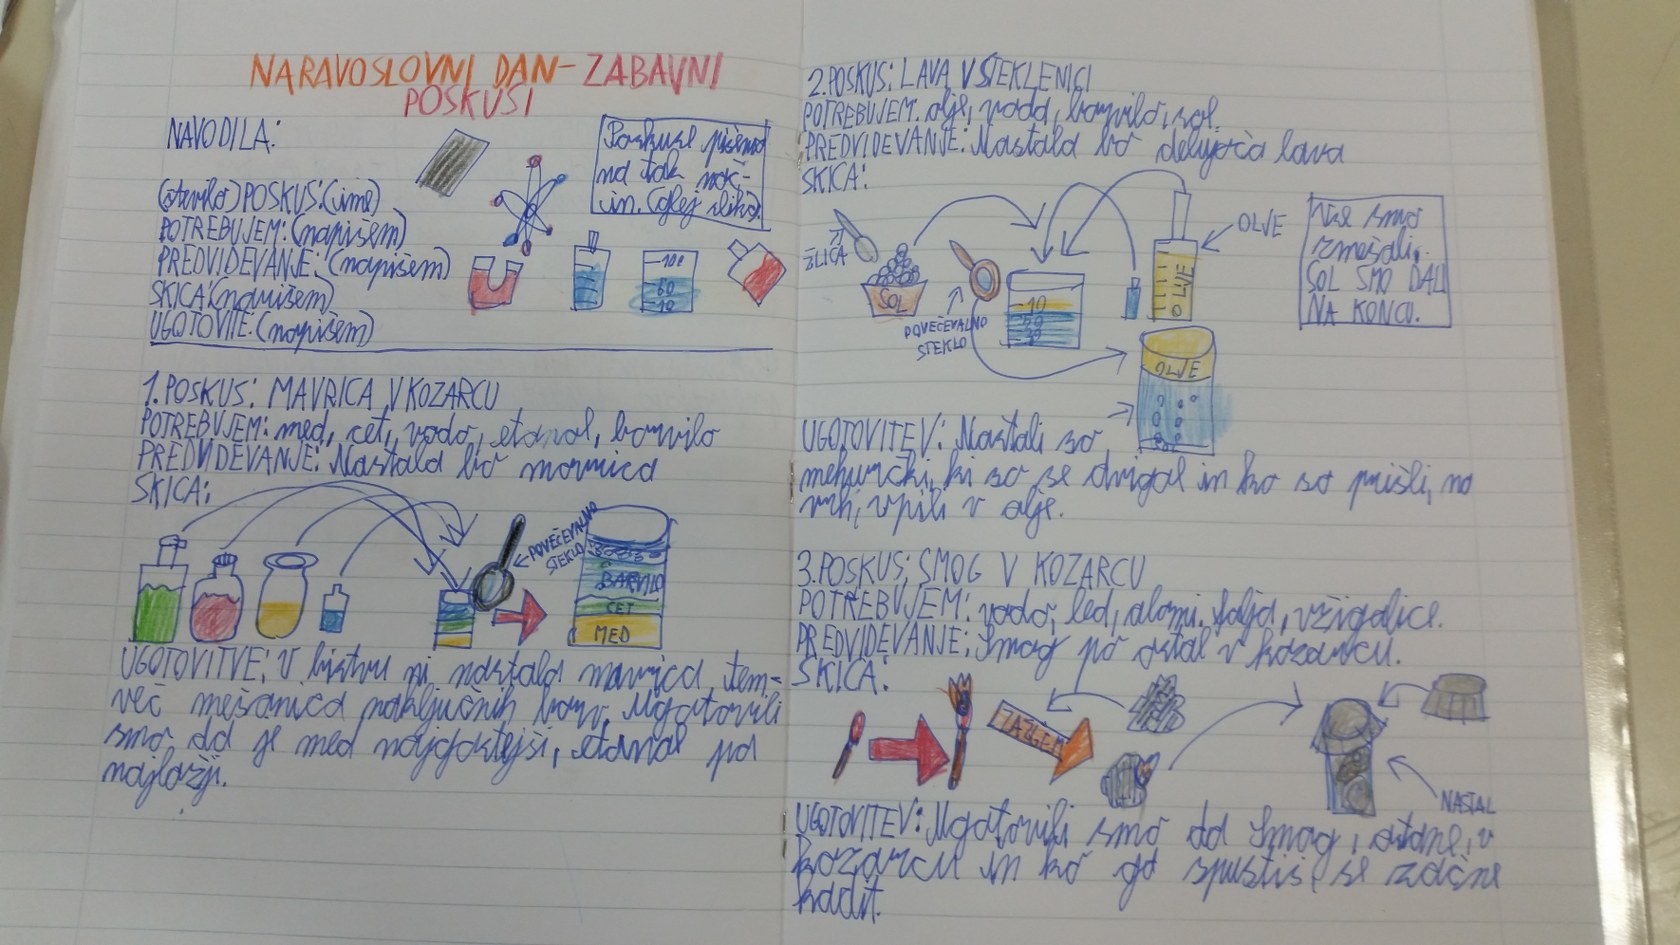 NARAVOSLOVNI DAN- ZABAVNI
POSKUSI
NAVODILA:
Poskuse pišemo
na tak nač-
in. (glej sliko).
(število) POSKUS: (ime)
POTREBUJEM: (napišem)
PREDVIDEVANJE: (napišem)
SKICA: (narišem)
UGOTOVITE: (napišem)
100
60
20
1. POSKUS: MAVRICA V KOZARCU
POTREBUJEM: med, čet, voda, etanol, barvilo
PREDVIDEVANJE: Nastala bo mavrica
SKICA:
POVEČEVALNO
STEKLO
BARVILO
ČET
MED
UGOTOVITVE: V bistvu ni nastala mavrica, tem-
več mešanica naključnih barv. Ugotovili
smo, da je med najgostejši, etanol pa
najlažji.
2. POSKUS: LAVA V STEKLENICI
POTREBUJEM: olje, voda, barvilo, sol.
PREDVIDEVANJE: Nastala bo delujoča lava
SKICA:
ŽLICA
SOL
POVEČEVALNO
STEKLO
OLJE
OLJE
OLJE
Vse smo
zmešali,
SOL SMO DALI
NA KONCU.
UGOTOVITEV: Nastali so
mehurčki, ki so se dvigal in ko so prišli, na
vrh, vpili v olje.
3. POSKUS: SMOG V KOZARCU
POTREBUJEM: voda, led, alumi. folija, vžigalice.
PREDVIDEVANJE: Smog po ostal v kozarcu.
SKICA:
ZAŽGEM
NASTAL
UGOTOVITEV: Ugotovili smo da smog, ostane, v
kozarcu in ko ga spustiš, se začne
kadit.